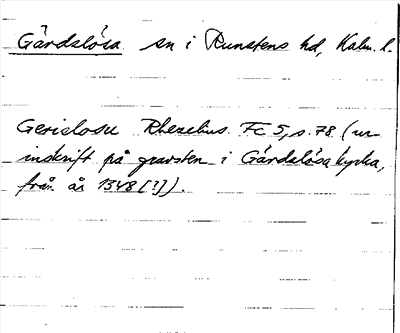 Gårdslösa sn i Runstens hd, Kalm. l.
Gerislosu Rhezelius Fc 5, s. 78 (ur
inskrift på gravsten i Gårdslösa kyrka,
från år 1348 [?]).